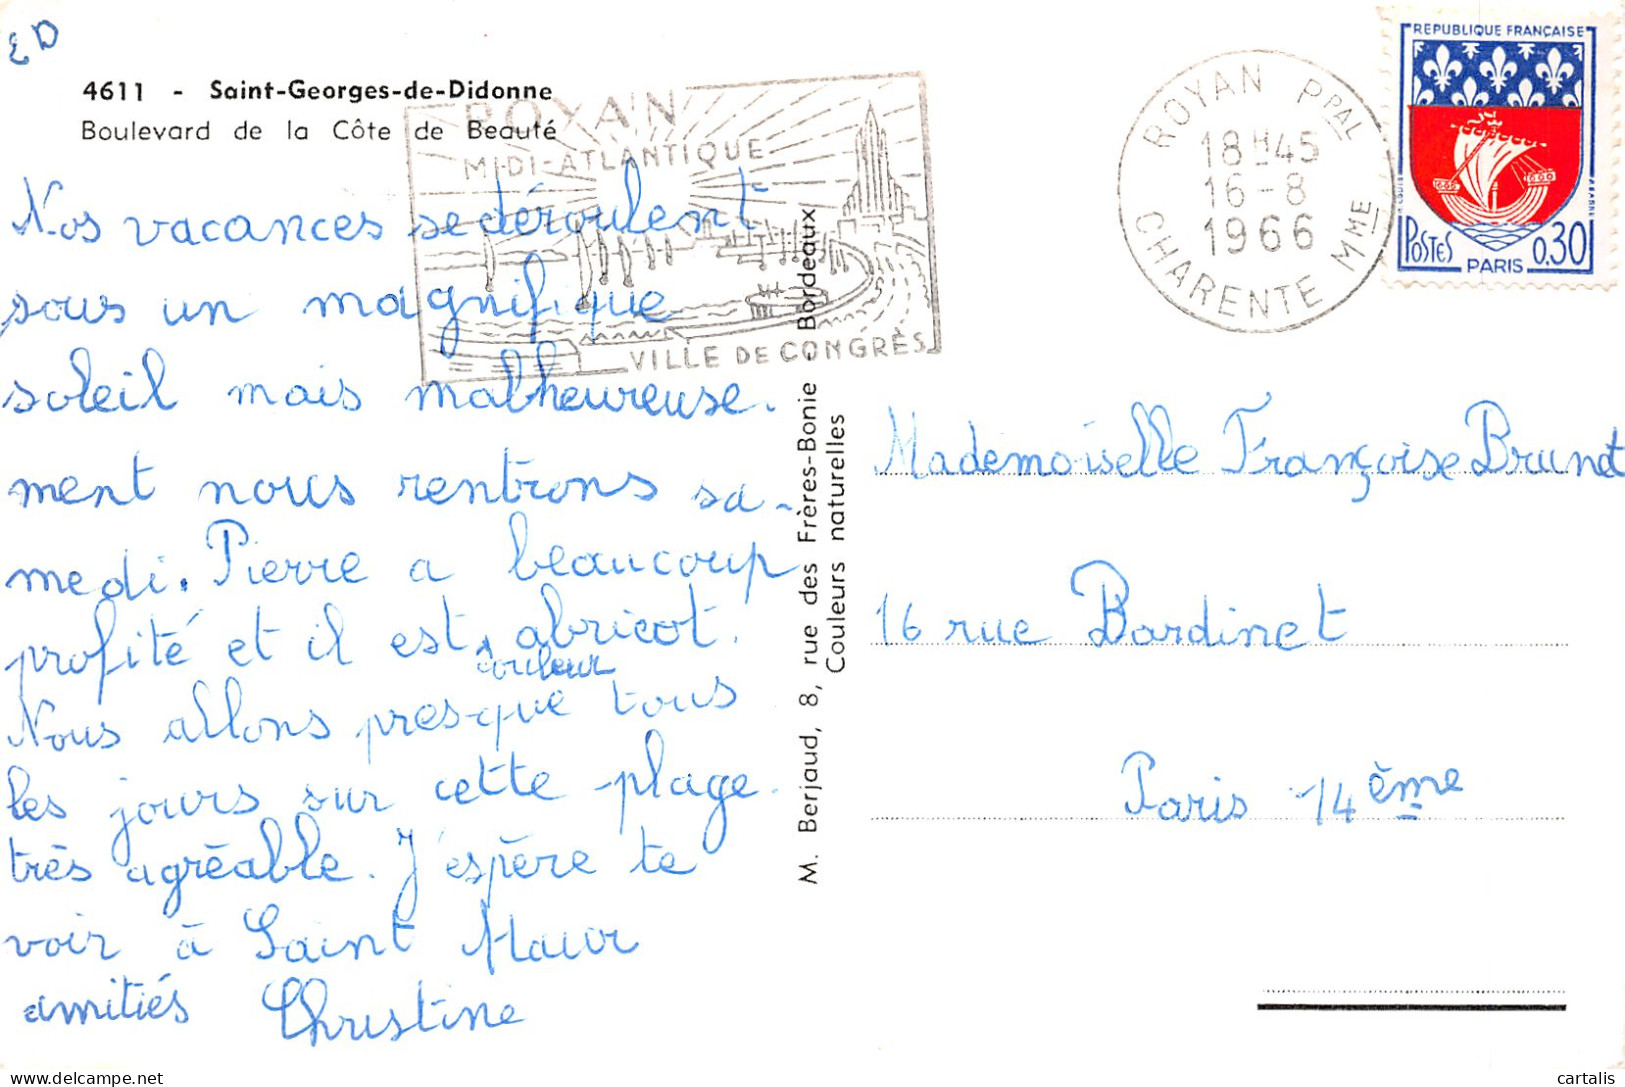 ED
4611 - Saint-Georges-de-Didonne
Boulevard de la Côte de Beauté
Nos vacances se déroulent
sous un magnifique
soleil mais malheureuse.
ment nous rentrons sa-
medi. Pierre a beaucoup
profité et il est abricot.
couleur
Nous allons presque tous
les jours sur cette plage
très agréable. J'espère te
voir à Saint Maur
amitiés Christine
ROYAN
MIDI-ATLANTIQUE
VILLE DE CONGRÈS
M. Berjaud, 8, rue des Frères-Bonie - Bordeaux
Couleurs naturelles
ROYAN PPAL
18H45
16-8
1966
CHARENTE MME
REPUBLIQUE FRANÇAISE
POSTES
PARIS
0.30
Mademoiselle Françoise Brunet
16 rue Bardinet
Paris 14ème
cartalis